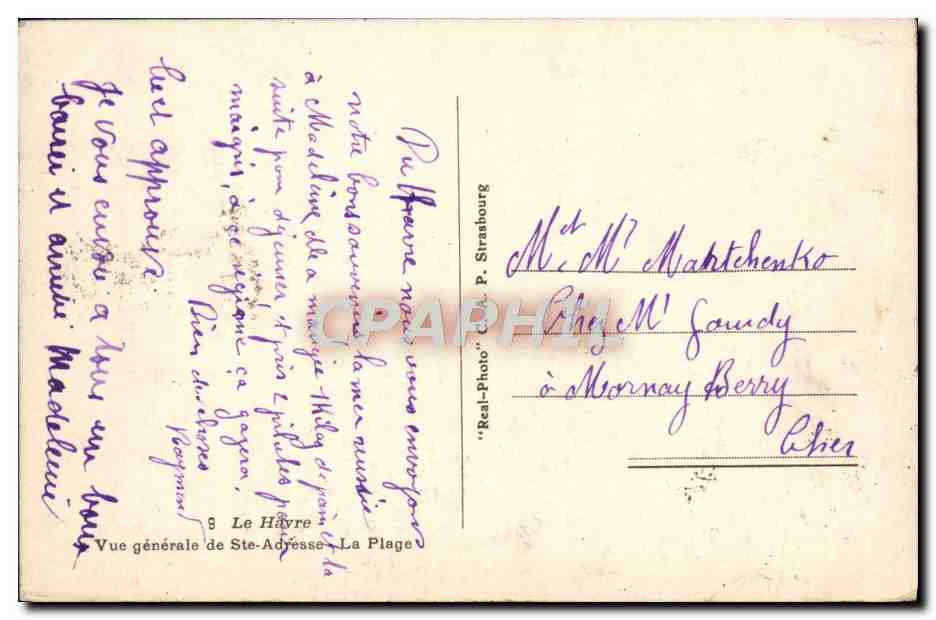 Du Havre nous vous envoyons
notre bons souvenirs la mer reussie
à Madeleine elle a mangée 1 kilog de pain et la
suite pour dejeuner et pris 2 pilules pour
maigrir, à ce régime ça gazera.
Bien des choses
Raymond
Lu et approuvé
Je vous envoie a tous un bons
baiser et amitié Madeleine
9 Le Havre
Vue générale de Ste-Adresse - La Plage
"Real-Photo" C. A. P. Strasbourg
M. et Mme Martchenko
Chez Mr Gaudy
à Mornay Berry
Cher
CPAPHIL